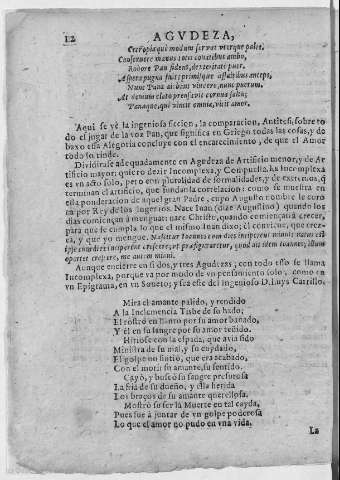 12 AGVDEZA,
Cecropia qui modum servat vterque palet.
Conseruere manus toto conatibus ambo,
Robore Pan fidens, dexteritate puer.
Aspera pugna fuit primisque assultibus anceps,
Nunc Pana aiebant vincere, nunc puerum.
At demum elato prensavit cornua saltu;
Panaque, qui vincit omnia, vicit amor.
Aqui se vè la ingeniosa ficcion, la comparacion, Antitesi, sobre to
do el jugar de la voz Pan, que significa en Griego todas las cosas, y de
baxo essa Alegoria concluye con el encarecimiento, de que el Amor
todo lo rinde.
Dividirase adequadamente en Agudeza de Artificio menor, y de Ar
tificio mayor; quiero dezir Incomplexa, y Compuesta. La Incomplexa
es vn acto solo, pero con pluralidad de formalidades, y de extremos, q
terminan el artificio, que fundan la correlacion: como se muestra en
esta ponderacion de aquel gran Padre, cuyo Augusto nombre le coro
na por Rey de los Ingenios. Nace Iuan (dize Augustino) quando los
dias comiençan à menguar: nace Christo, quando comiençan à crecer,
para que se cumpla lo que el mismo Iuan dixo; èl conviene, que crez-
ca, y que yo mengue.
oportet crescere, me autem minui.
Aunque encierre en si dos, y tres Agudezas; con todo esso se llama
Incomplexa, porque va por modo de vn pensamiento solo, como en
vn Epigrama, en vn Soneto; y sea este del ingenioso D. Luys Carrillo.
Mira el amante palido, y rendido
A la Inclemencia Tisbe de su hado;
El rostro en llanto por su amor bañado,
Y èl en su sangre por su amor teñido.
Hiriose con la espada, que avia sido
Ministra de su mal, y su cuydado,
El golpe no sintiò, que era acabado,
Con el morir su amante, su sentido.
Cayò, y buscò su sangre presurosa
La fria de su dueño, y ella herida
Los braços de su amante querellosa.
Mostrò su ser la Muerte en tal cayda,
Pues fue à juntar de vn golpe poderosa
Lo que el amor no pudo en vna vida.
La